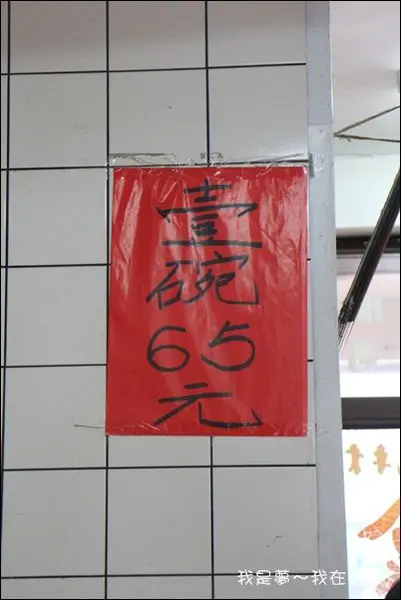 壹
碗
65
元
我是夢～我在